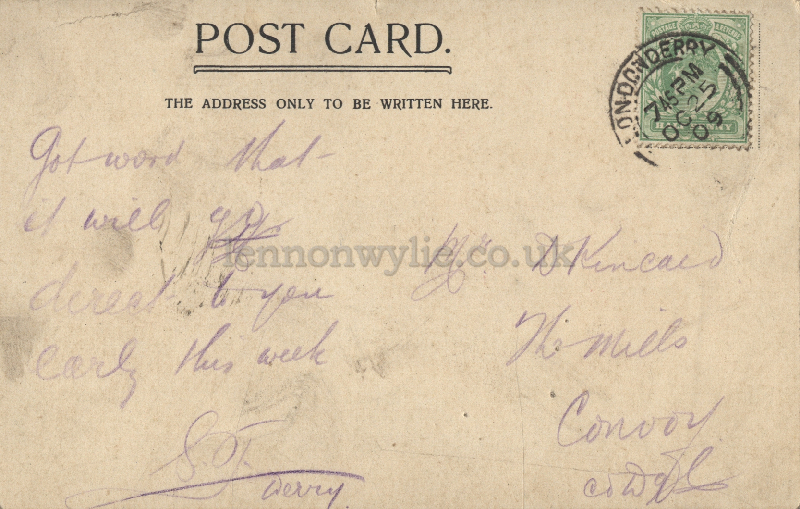 POST CARD.
THE ADDRESS ONLY TO BE WRITTEN HERE.
LONDONDERRY
7 45 PM
OC 25
09
Got word that
it will go
derect to you
early this week
S.F.
Derry
lennonwylie.co.uk
Mr D Kincaid
The Mills
Convoy
Co Dgl